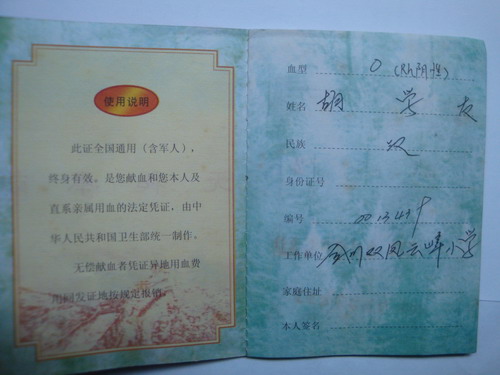 使用说明
此证全国通用（含军人），
终身有效。是您献血和您本人及
直系亲属用血的法定凭证，由中
华人民共和国卫生部统一制作。
无偿献血者凭证异地用血费
用回发证地按规定报销。
血型 O（Rh阴性）
姓名 胡学友
民族 汉
身份证号
编号
工作单位 双凤云峰小学
家庭住址
本人签名